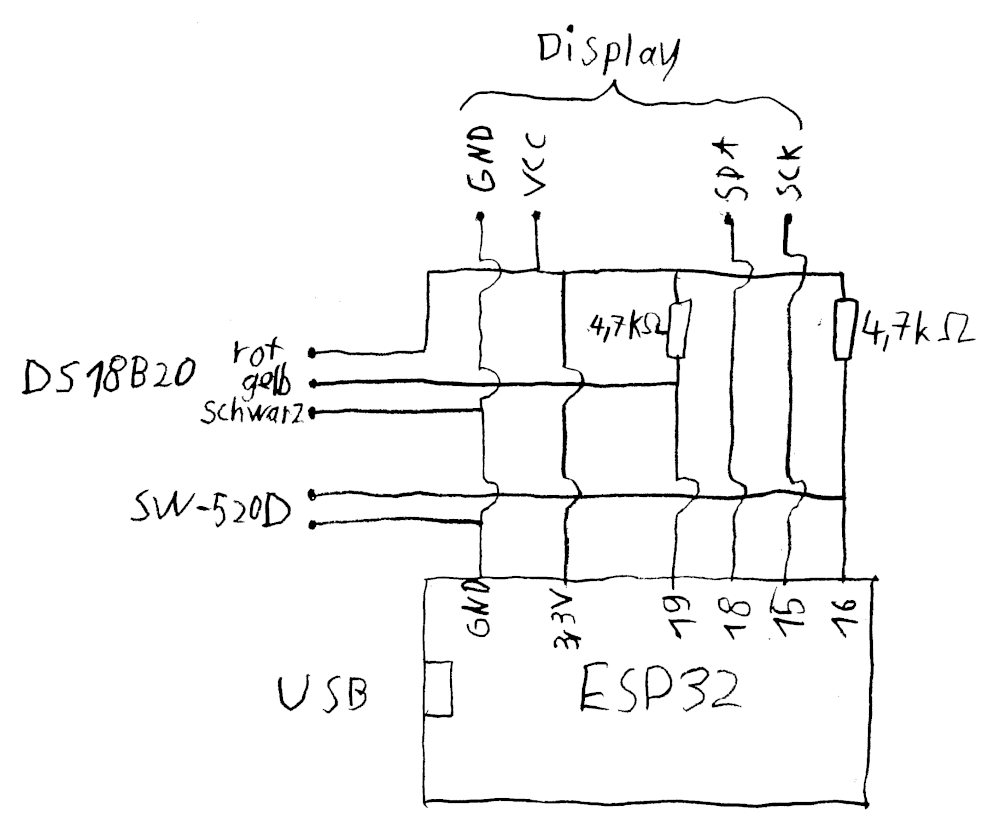 Display
GND VCC SDA SCK
4,7kΩ 4,7kΩ
DS18B20 rot
gelb
schwarz
SW-520D
GND 3,3V 19 18 15 16
USB ESP32